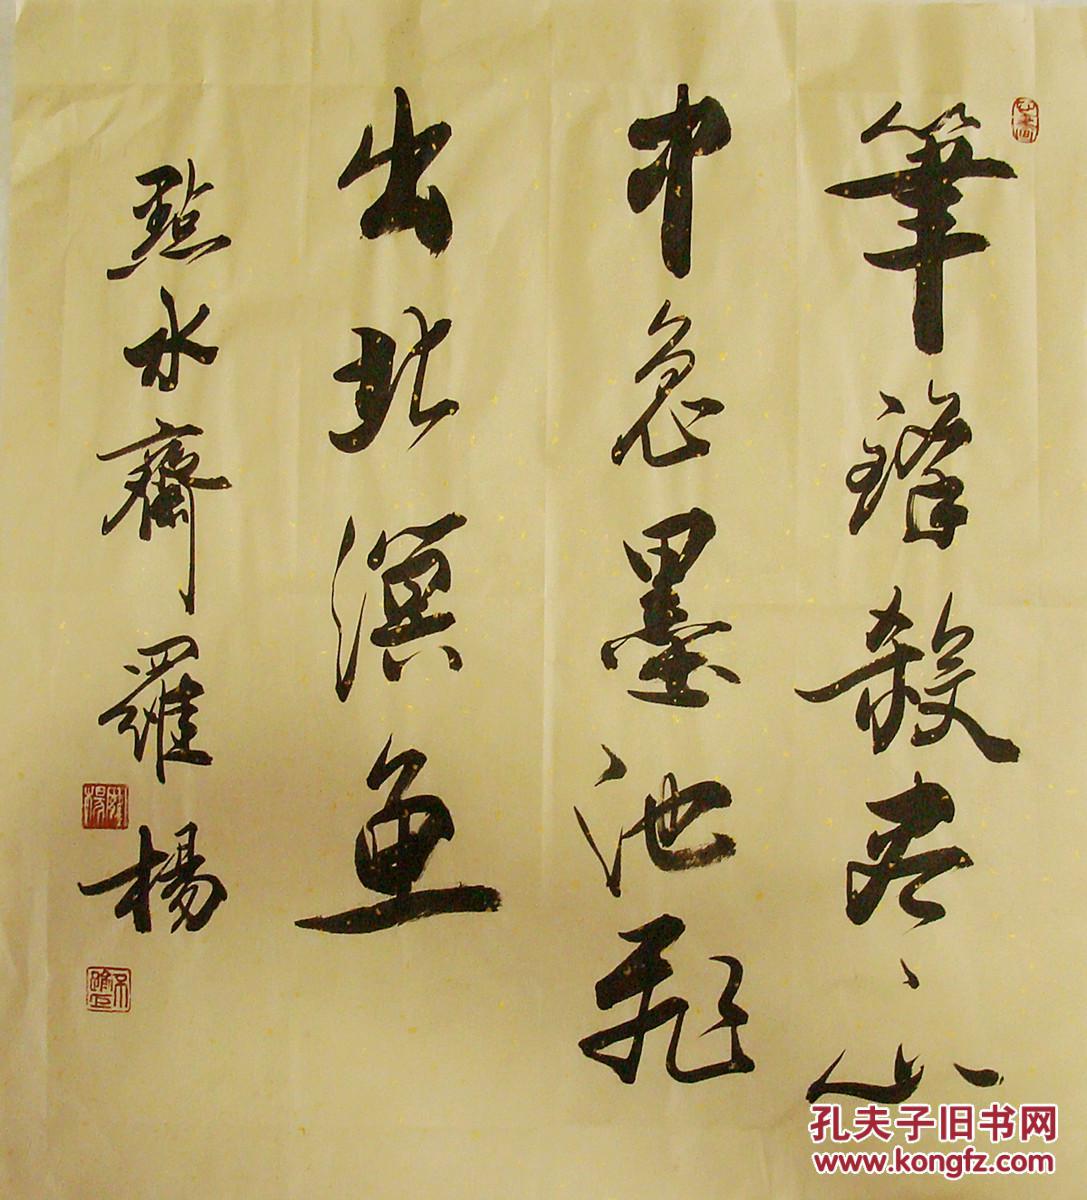 筆鋒殺尽山
中兔墨池飛
出北溟魚
點水齋羅楊
孔夫子旧书网
www.kongfz.com